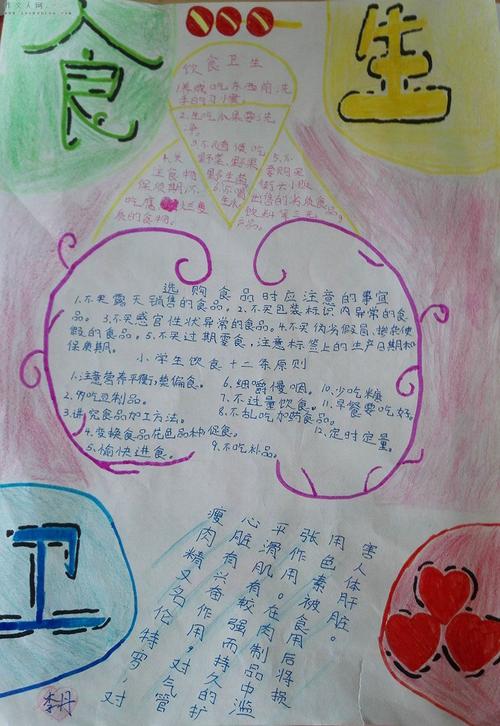 食
生
饮食卫生
1.养成吃东西前洗
手的习惯。
2.生吃瓜果要洗
净。
3.不随便吃
野菜、野果
4.关
主食物
保质期,不
吃腐
质的食物。
野生菇
6.不喝
生水
5.不
要购买
街头小贩
出售的劣质食品,
饮料等三无
产品。
选购食品时应注意的事宜
1.不买露天销售的食品。2.不买包装标识内异常的食
品。3.不买感官性状异常的食品。4.不买伪劣假冒、掺杂使
假的食品。5.不买过期零食,注意标签上的生产日期和
保质期。
小学生饮食十二条原则
1.注意营养平衡,禁偏食。
2.
吃豆制品。
3.讲究食品加工方法。
4.变换食品花色品种,促食。
5.愉快进食。
6.细嚼慢咽。
7.不过量饮食。
8.不乱吃加药食品。
9.不吃补品。
10.少吃糖
11.早餐要吃好
12.定时定量。
瘦肉精又名伦特罗,对
心脏有兴奋作用,对气管
平滑肌有较强而持久的扩
张作用。在肉制品中滥
用色素被食用后将损
害人体肝脏。
卫
李丹